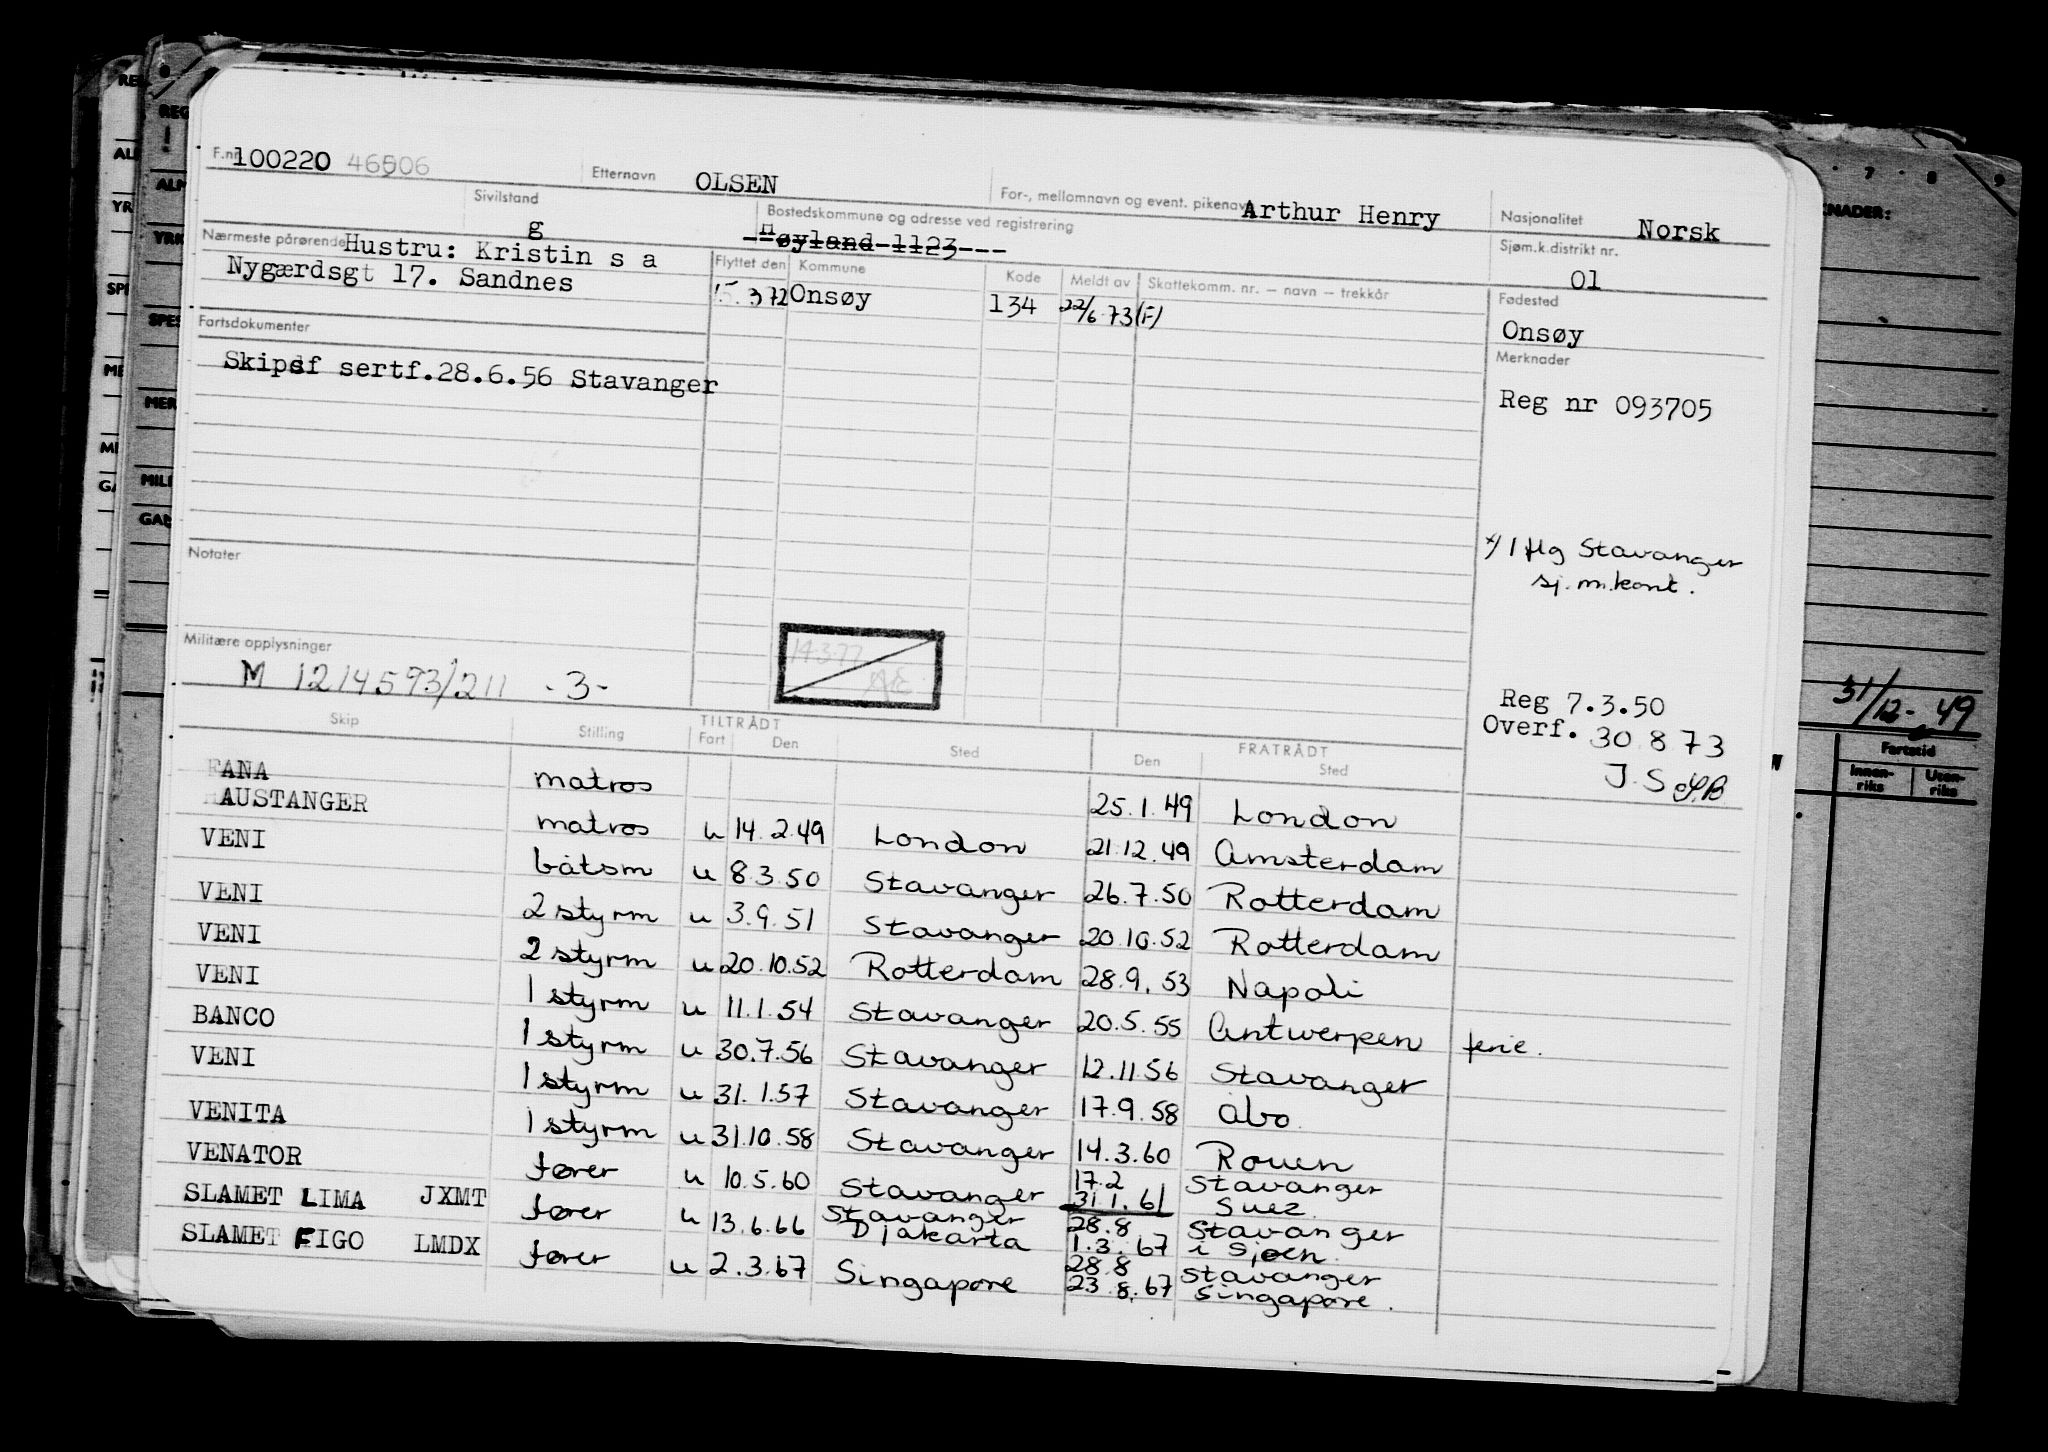 F.nr. 100220 46506 Etternavn OLSEN For-, mellomnavn og event. pikenavn Arthur Henry Nasjonalitet Norsk
Sivilstand g Bostedskommune og adresse ved registrering Høyland 1123 Sjøm.k.distrikt nr. 01
Nærmeste pårørende Hustru: Kristin s a
Nygærdsgt 17. Sandnes
Flyttet den Kommune Kode Meldt av Skattekomm. nr. – navn – trekkår
15.3 72 Onsøy 134 22/6 73 (F)
Fødested
Onsøy
Fartsdokumenter
Skipsf sertf.28.6.56 Stavanger
Merknader
Reg nr 093705
x) I flg Stavanger
sj.m.kont.
Notater
Militære opplysninger
M 1214593/211 -3-
14377
Reg 7.3.50
Overf. 30 8 73
J.S
31/12-49
Skip Stilling TILTRÅDT Fart Den Sted FRATRÅDT Den Sted
FANA matros 25.1.49 London
HAUSTANGER matros u 14.2.49 London 21.12.49 Amsterdam
VENI båtsm u 8.3.50 Stavanger 26.7.50 Rotterdam
VENI 2 styrm u 3.9.51 Stavanger 20.10.52 Rotterdam
VENI 2 styrm u 20.10.52 Rotterdam 28.9.53 Napoli
VENI 1 styrm u 11.1.54 Stavanger 20.5.55 Antwerpen ferie.
BANCO 1 styrm u 30.7.56 Stavanger 12.11.56 Stavanger
VENI 1 styrm u 31.1.57 Stavanger 17.9.58 Åbo
VENITA 1 styrm u 31.10.58 Stavanger 14.3.60 Rouen
VENATOR fører u 10.5.60 Stavanger 17.2 Stavanger
31.1.61 Suez
SLAMET LIMA JXMT fører u 13.6.66 Stavanger 28.8 Stavanger
Djakarta 1.3.67 i Sjøen
SLAMET FIGO LMDX fører u 2.3.67 Singapore 28.8 Stavanger
23.8.67 Singapore.
KNADER:
Fartstid
Innen-
riks
Uten-
riks